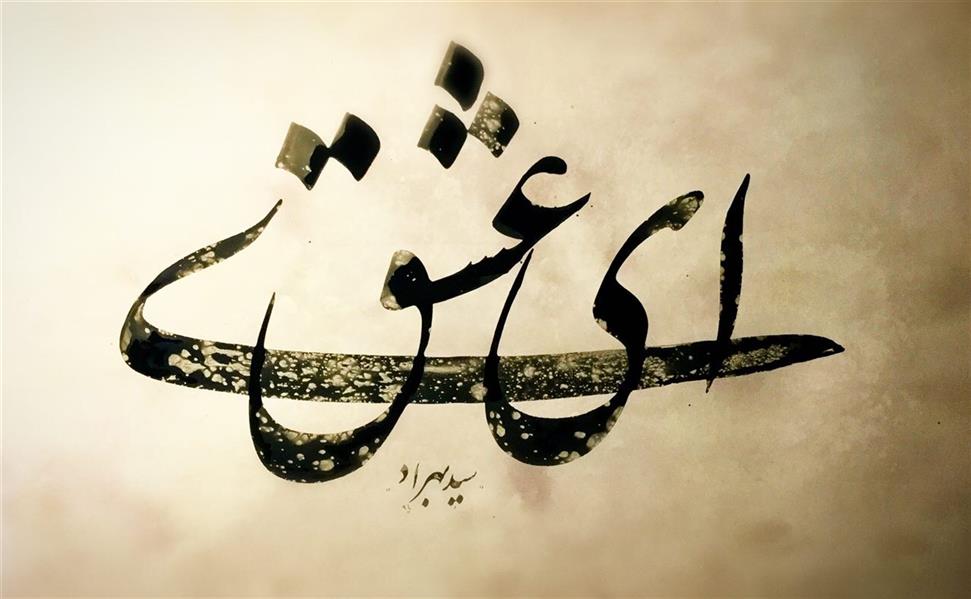 ای عشق
سید بهراد